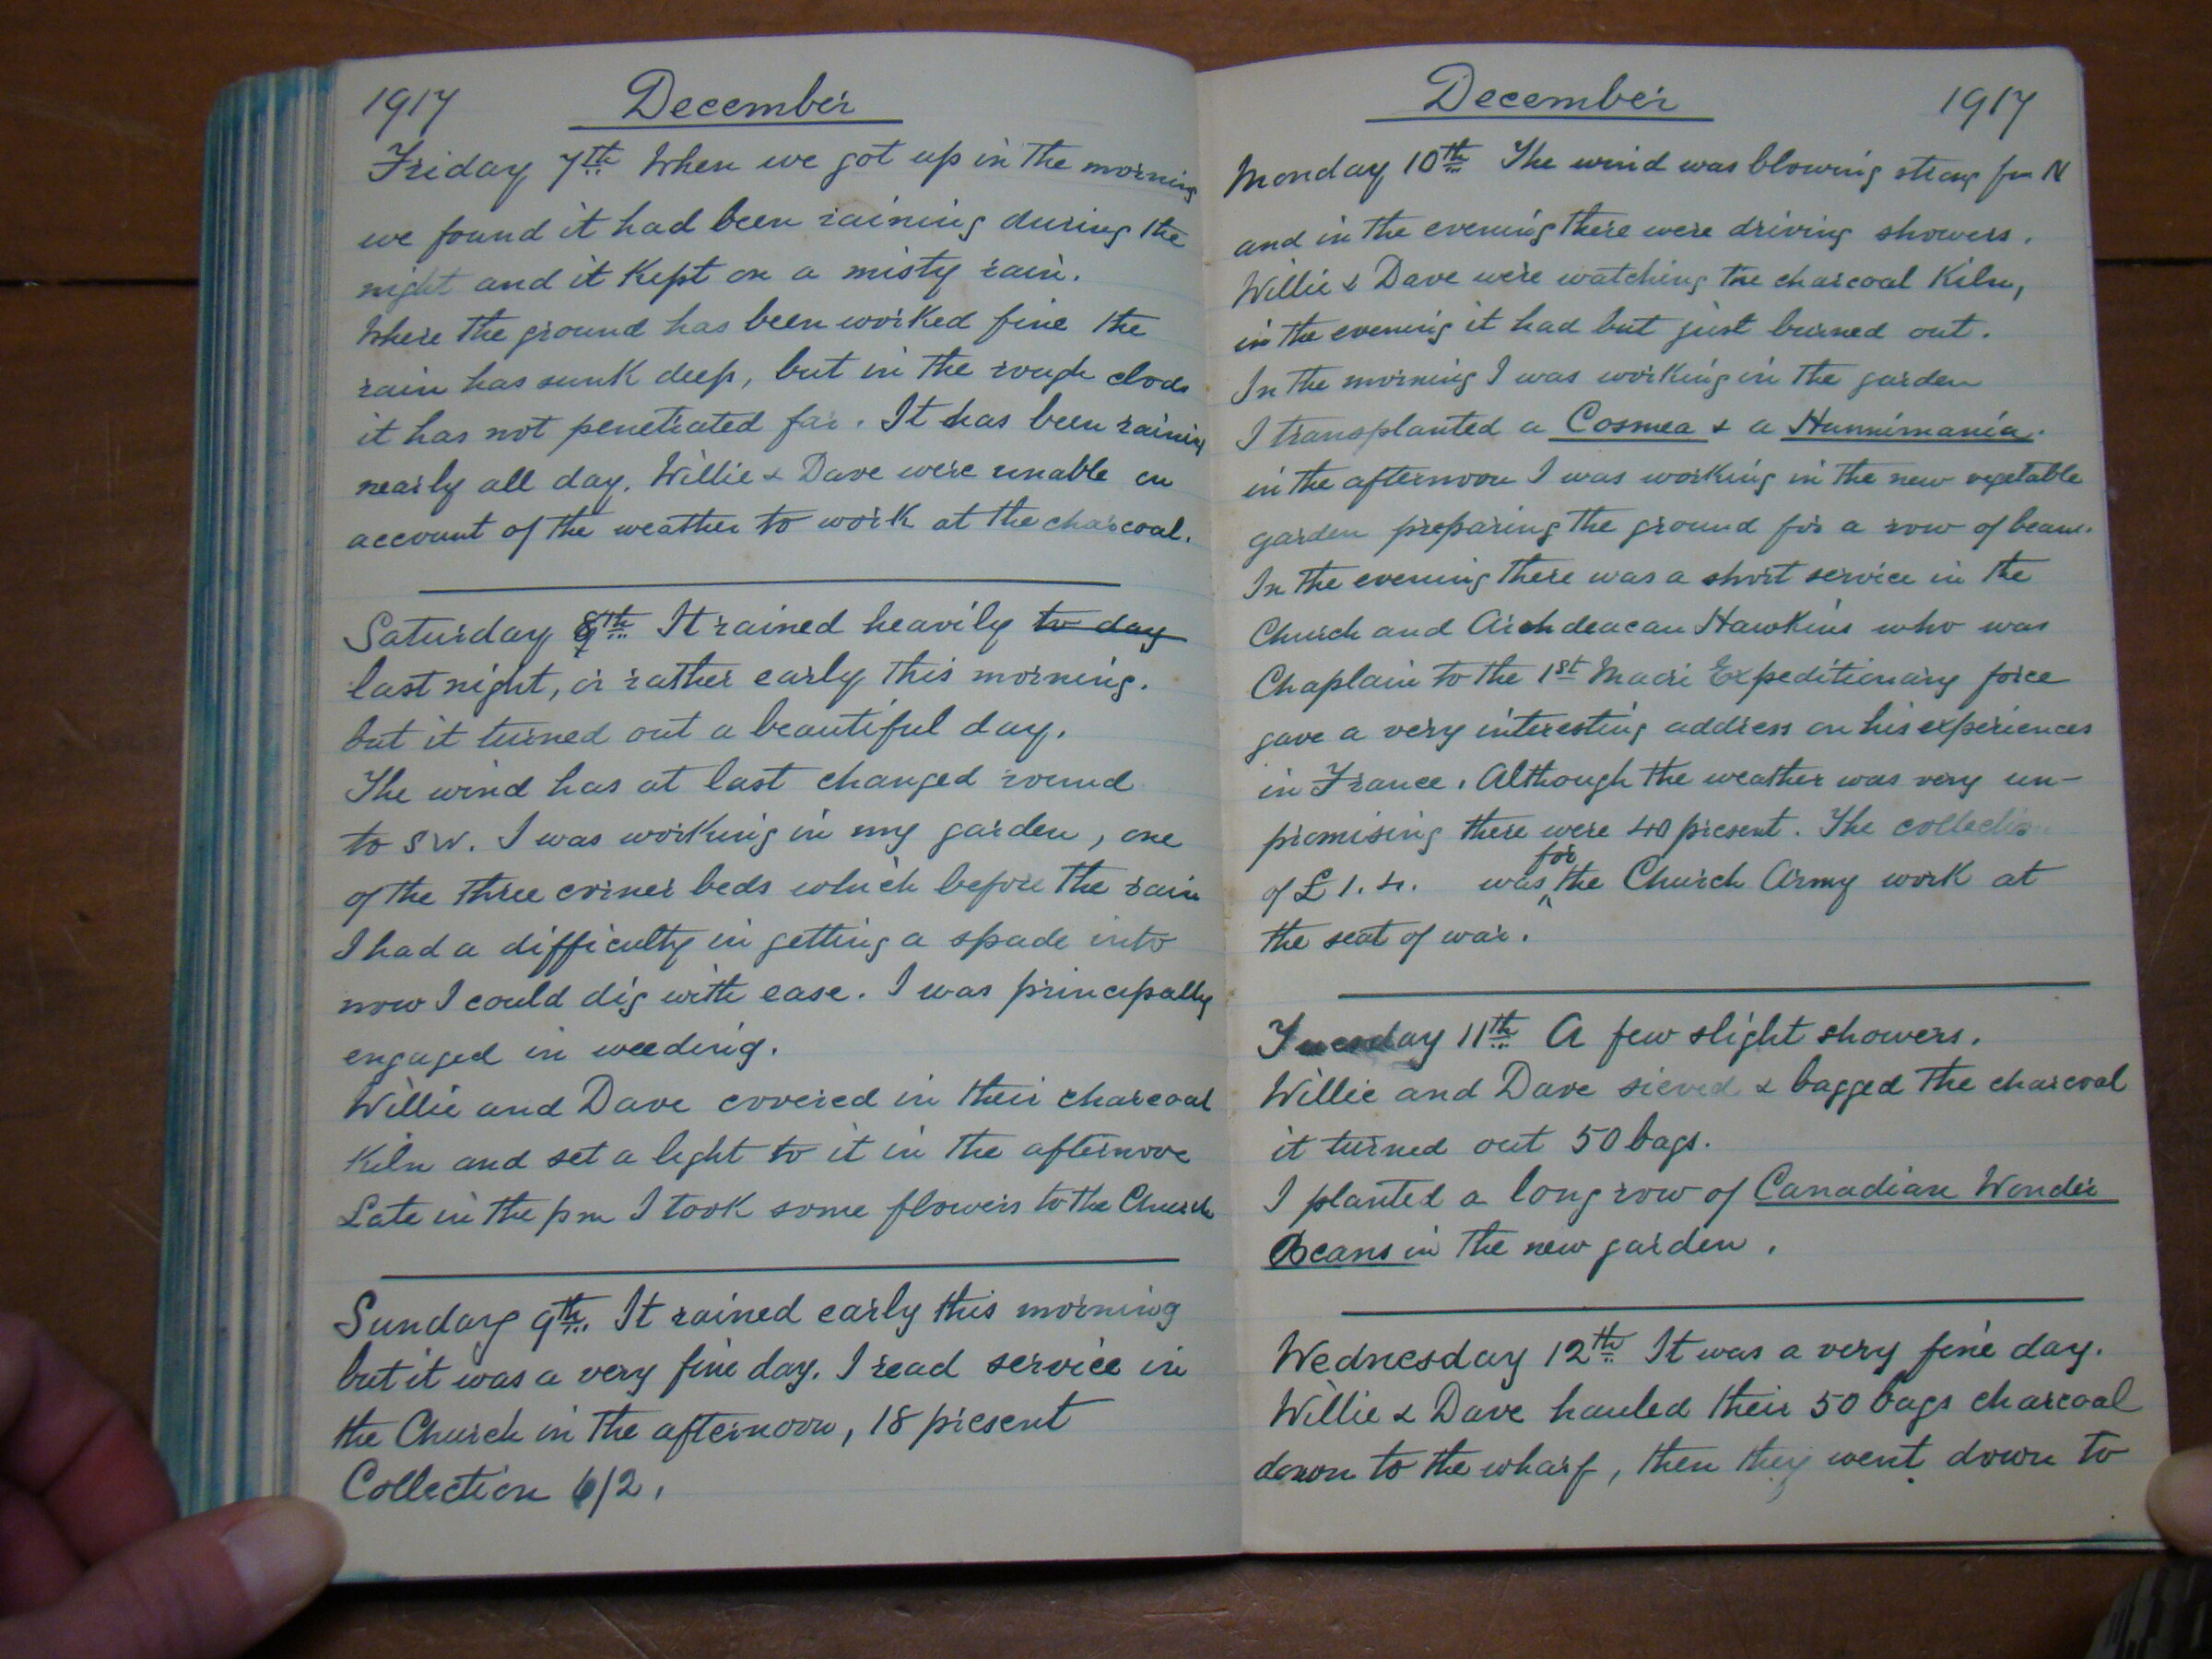 1917 December
Friday 7th When we got up in the morning
we found it had been raining during the
night and it kept on a misty rain.
Where the ground has been worked fine the
rain has sunk deep, but in the rough clods
it has not penetrated far. It has been raining
nearly all day. Willie & Dave were unable on
account of the weather to work at the charcoal.
Saturday 8th It rained heavily to day
last night, or rather early this morning.
but it turned out a beautiful day.
The wind has at last changed round
to SW. I was working in my garden, one
of the three corner beds which before the rain
I had a difficulty in getting a spade into
now I could dig with ease. I was principally
engaged in weeding.
Willie and Dave covered in their charcoal
Kiln and set a light to it in the afternoon
Late in the pm I took some flowers to the Church
Sunday 9th. It rained early this morning
but it was a very fine day. I read service in
the Church in the afternoon, 18 present
Collection 6/2.
December 1917
Monday 10th The wind was blowing strong fm N
and in the evening there were driving showers.
Willie & Dave were watching the charcoal Kiln,
in the evening it had but just burned out.
In the morning I was working in the garden
I transplanted a Cosmea & a Hunnimania.
in the afternoon I was working in the new vegetable
garden preparing the ground for a row of beans.
In the evening there was a short service in the
Church and Archdeacan Hawkins who was
Chaplain to the 1st Maori Expeditionary force
gave a very interesting address on his experiences
in France. Although the weather was very un-
promising there were 40 present. The collection
of £1.4. was for the Church Army work at
the seat of war.
Tuesday 11th A few slight showers.
Willie and Dave sieved & bagged the charcoal
it turned out 50 bags.
I planted a long row of Canadian Wonder
Beans in the new garden.
Wednesday 12th It was a very fine day.
Willie & Dave hauled their 50 bags charcoal
down to the wharf, then they went down to